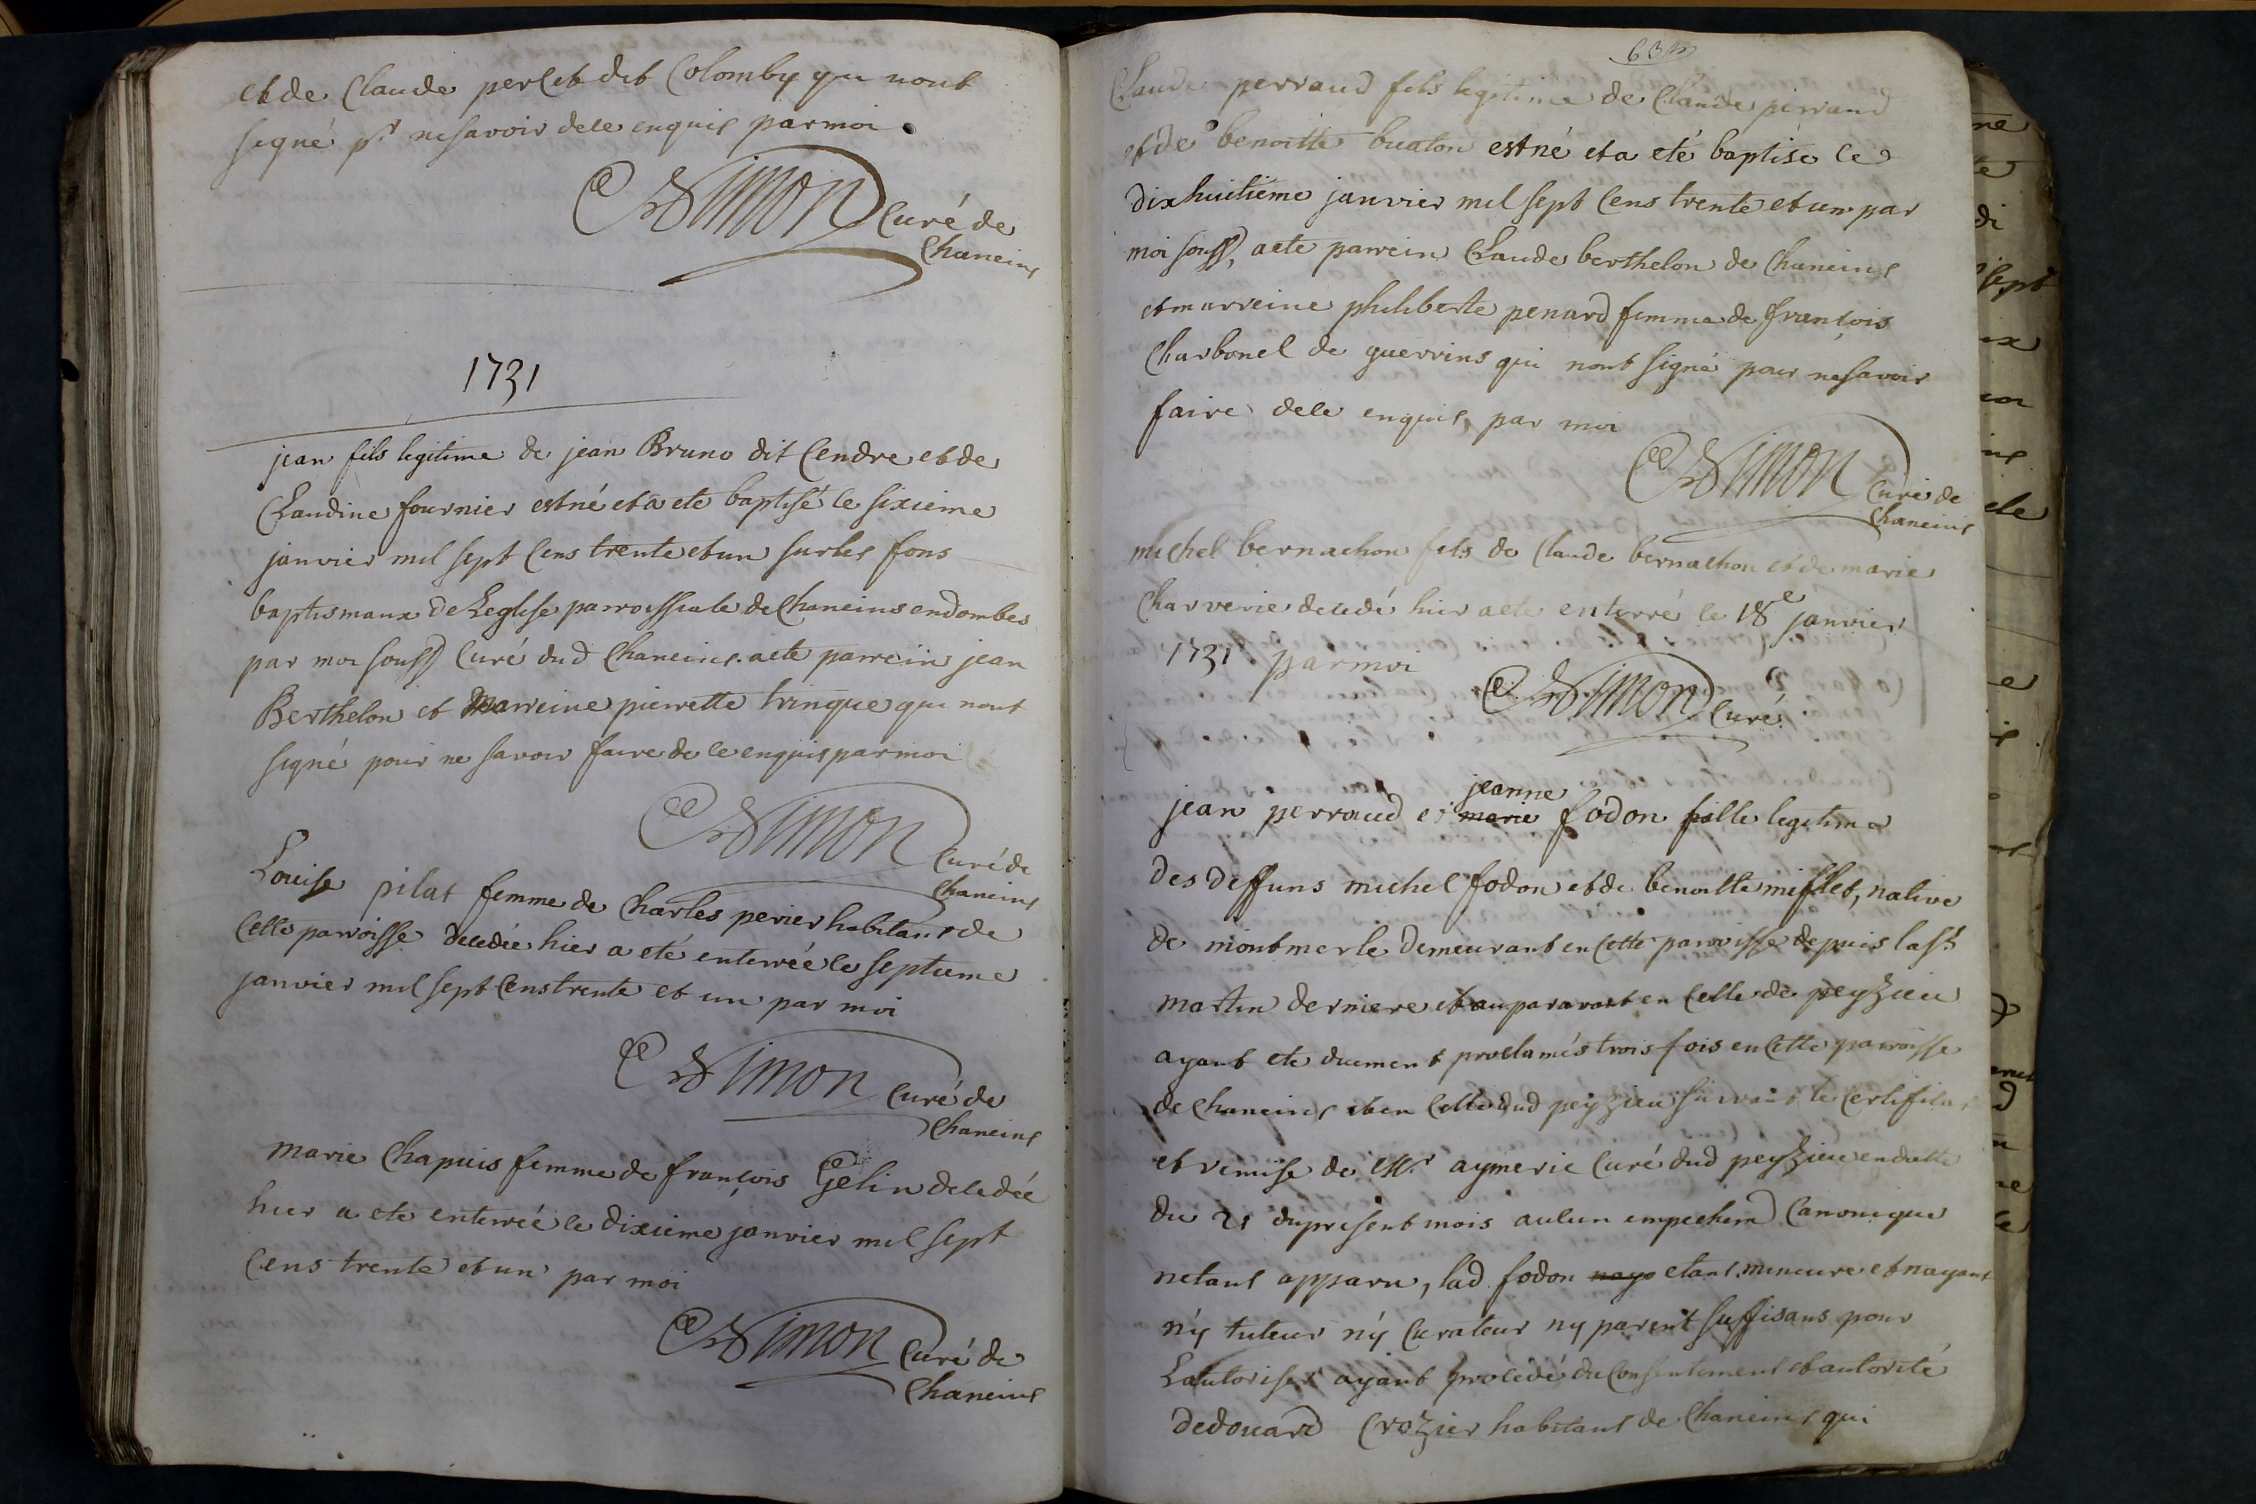 et de Claude percet dit Colomby qui nont
signé pr ne savoir de ce enquis par moi
Simon Curé de
Chaneins
1731
jean fils legitime de jean Bruno dit Cendre et de
Claudine fournier est né et a ete baptisé le sixieme
janvier mil sept Cens trente et un sur les fons
baptismaux de Leglise parroissiale de Chaneins en dombes
par moi souss Curé dud Chaneins. a ete parrein jean
Berthelon et Marreine pierrette trinque qui nont
signé pour ne savoir faire de ce enquis par moi
Simon Curé de
Chaneins
Louise pilat femme de Charles perier habitant de
Cette parroisse decedée hier a eté enterrée le septieme
janvier mil sept Cens trente et un par moi
Simon Curé de
Chaneins
marie Chapuis femme de françois Gelin decedée
hier a ete enterrée le dixieme janvier mil sept
Cens trente et un par moi
Simon Curé de
Chaneins
63
Claude perraud fils legitime de Claude perraud
et de benoitte buaton est né et a eté baptisé le
dixhuitieme janvier mil sept Cens trente et un par
moi souss, a ete parrein Claude berthelon de Chaneins
et marreine philiberte penard femme de françois
Charbonel de guerrins qui nont signé pour ne savoir
faire de ce enquis par moi
Simon Curé de
Chaneins
michel bernachon fils de Claude bernachon et de marie
Charverie decedé hier a ete enterré le 18e janvier
1731 par moi
Simon Curé
jeanne
jean perraud et marie fodon fille legitime
des deffuns michel fodon et de benoitte mifflet, native
de montmerle demeurant en Cette parroisse depuis la st
martin derniere et auparavant en Celle de peyzieu
ayant ete duement proclamés trois fois en Cette parroisse
de Chaneins et en Celle dud peyzieu suivant le Certificat
et remise de Mr aymeric Curé dud peyzieu en datte
du 21 du present mois aucun empechem Canonique
netant apparu, lad fodon naya etant mineure et nayant
n'y tuteur n'y Curateur ny parent suffisans pour
Lautoriser ayant procedé du Consentement et autorité
dedouard Crozier habitant de Chaneins qui